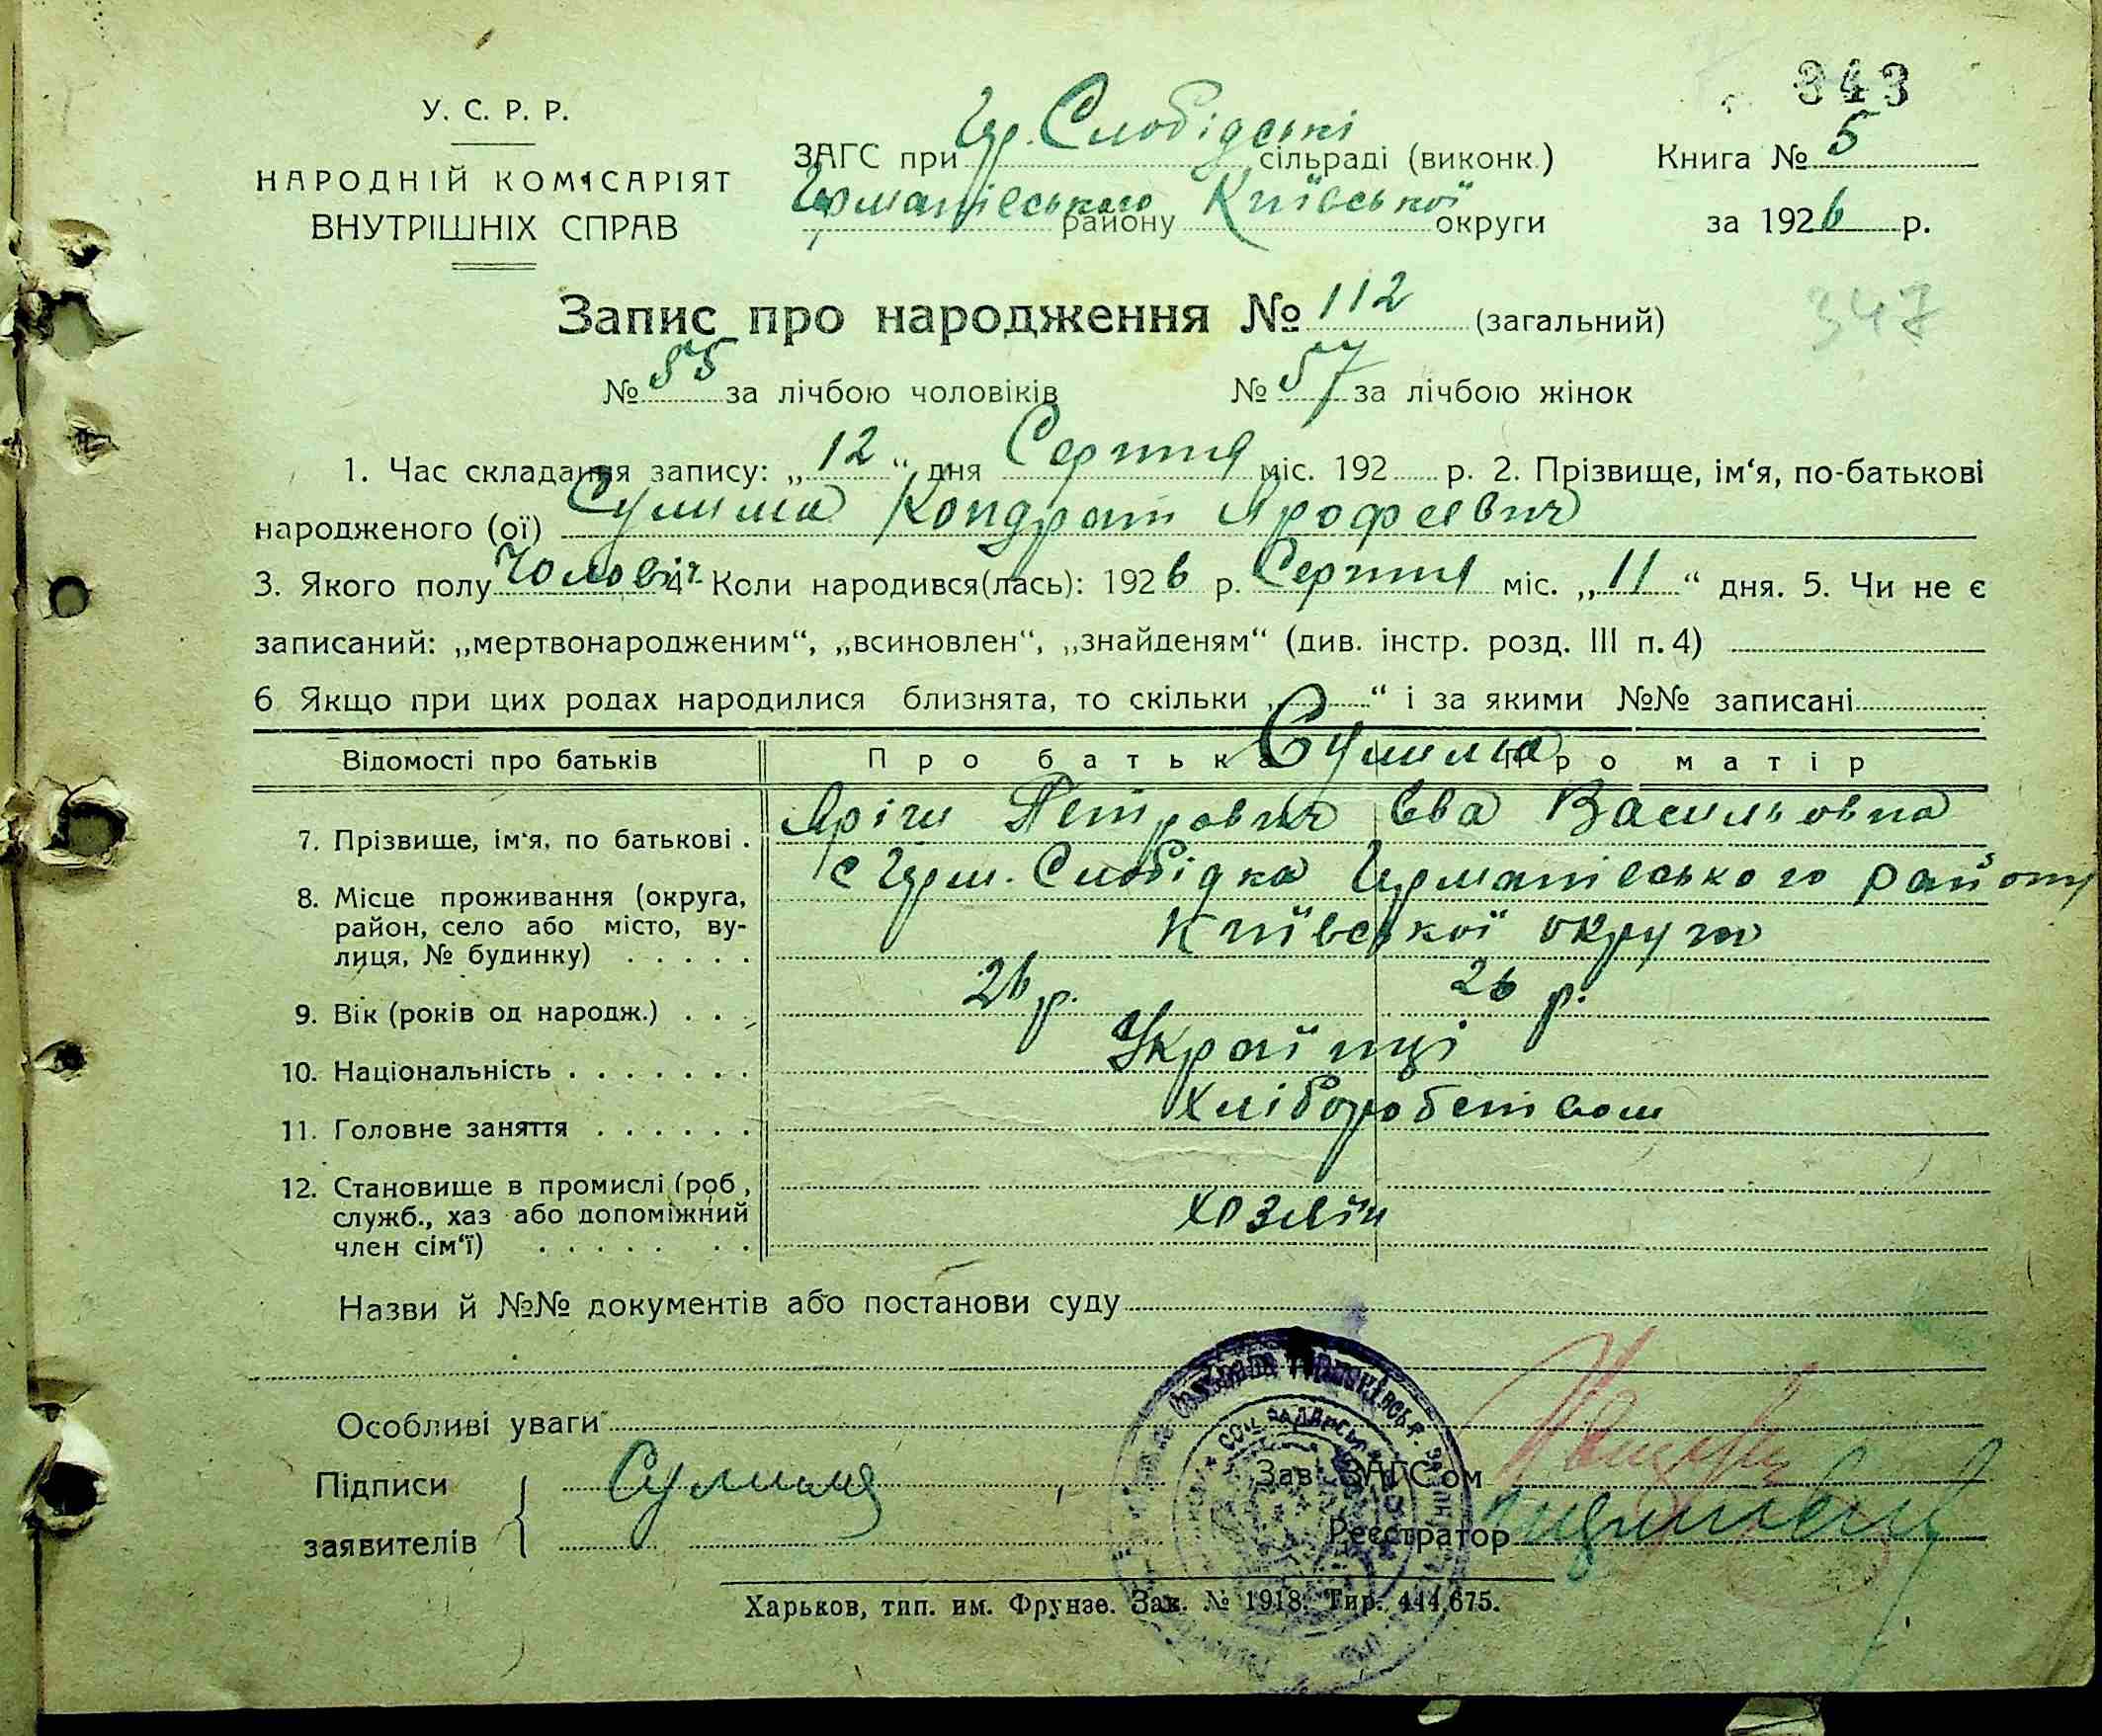 343
У. С. Р. Р.
НАРОДНІЙ КОМІСАРІЯТ
ВНУТРІШНІХ СПРАВ
ЗАГС при Гер. Слобідські сільраді (виконк.)
Германівського району Київської округи
Книга № 5
за 1926 р.
Запис про народження № 112 (загальний)
347
№ 55 за лічбою чоловіків № 57 за лічбою жінок
1. Час складання запису: „12“ дня Серпня міс. 192 р. 2. Прізвище, ім‘я, по-батькові
народженого (ої) Сулима Кондрат Ярофеевич
3. Якого полу Чоловіч. 4. Коли народився(лась): 1926 р. Серпня міс. „11“ дня. 5. Чи не є
записаний: „мертвонародженим“, „всиновлен“, „знайденям“ (див. інстр. розд. III п. 4)
6 Якщо при цих родах народилися близнята, то скільки „ “ і за якими №№ записані
Відомості про батьків Про батька Про матір
Сулима
7. Прізвище, ім‘я, по батькові . Петрович Ева Васильовна
8. Місце проживання (округа, район, село або місто, ву-
лиця, № будинку) . . . . .
с Герм. Слобідка Германівського району
Київської округи
9. Вік (років од народж.) . . . 26 р. 26 р.
10. Національність . . . . . . . Українці
11. Головне заняття . . . . . . Хліборобством
12. Становище в промислі (роб.,
служб., хаз або допоміжний
член сім‘ї) . . . . . . . хозяїн
Назви й №№ документів або постанови суду
Особливі уваги
Підписи
заявителів
Сулима
Зав. ЗАГС‘ом
Реєстратор
Харьков, тип. им. Фрунзе. Зак. № 1918. Тир. 444,675.